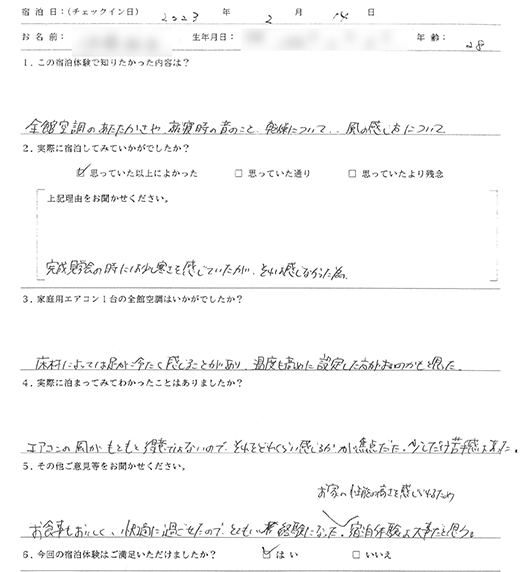 宿泊日:(チェックイン日) 2023 年 2 月 14 日
お名前: 生年月日: 年齢: 28
1. この宿泊体験で知りたかった内容は?
全館空調のあたたかさや、就寝時の音のこと、乾燥について、、風の感じ方について
2. 実際に宿泊してみていかがでしたか?
☑ 思っていた以上によかった □ 思っていた通り □ 思っていたより残念
上記理由をお聞かせください。
完成見学会の時には少し寒さを感じていたが、それは感じなかった為。
3. 家庭用エアコン1台の全館空調はいかがでしたか?
床材によっては足が冷たく感じることがあり、温度も高めに設定した方がよいのかもと思った。
4. 実際に泊まってみてわかったことはありましたか?
エアコンの風がもともと得意ではないので、それをどれくらい感じるかが焦点だった。少しだけ苦手感はあった。
5. その他ご意見等をお聞かせください。
お家の性能の高さを感じられるため
お食事もおいしく、快適に過ごせたので、とてもいい経験になった。宿泊体験は大事だと思う。
6. 今回の宿泊体験はご満足いただけましたか? ☑ はい □ いいえ